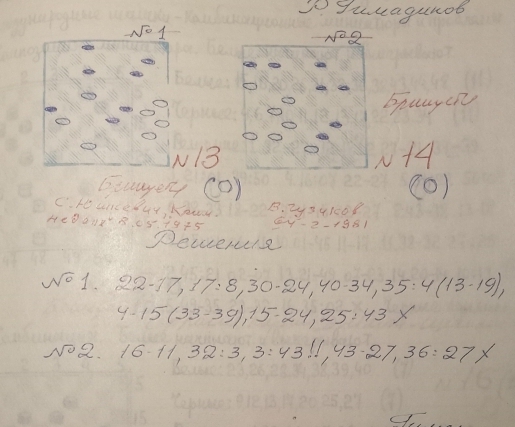 Р Гимадинов
№1 №2
Бришусты
N13 N14
Бришусты (0) (0)
С. Юшкевич, Крам.
В. Гузиков
64-2-1981
Решения
№1. 22-17, 17:8, 30-24, 40-34, 35:4(13-19),
4-15(33-39), 15-24, 25:43 X
№2. 16-11, 32:3, 3:43!!, 43-27, 36:27 X